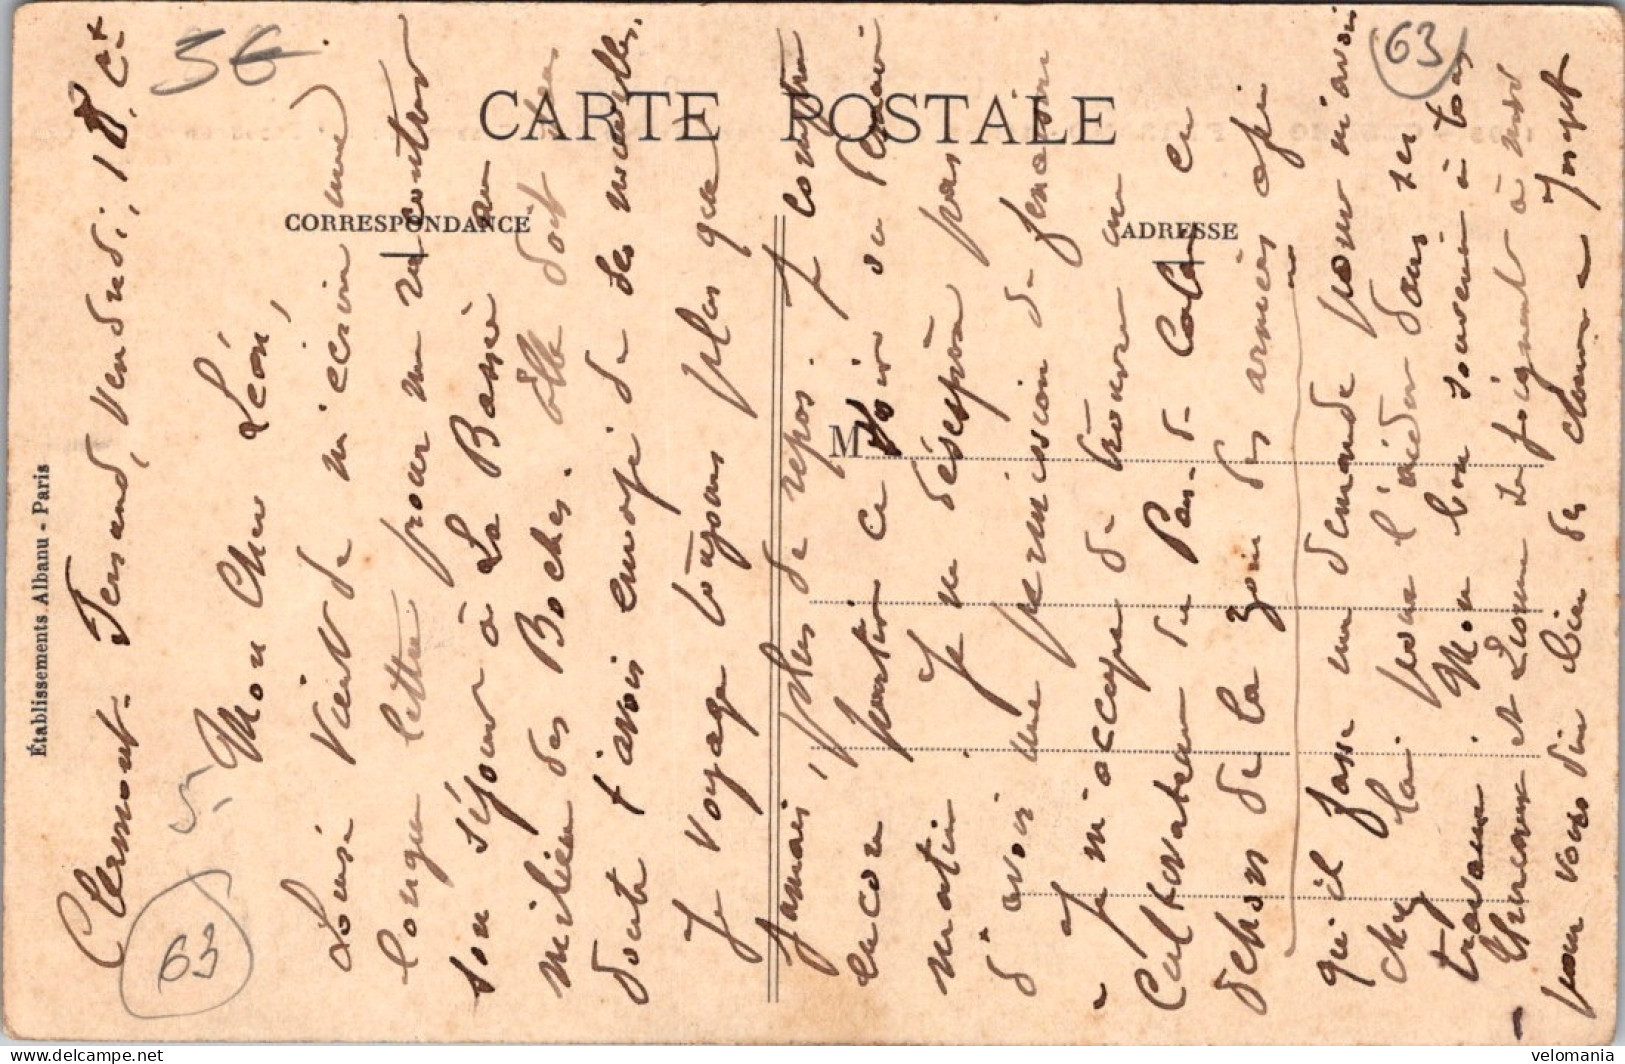 CARTE POSTALE
CORRESPONDANCE
ADRESSE
M
Établissements Albanu - Paris
56
63
63
Clermont-Ferrand, Vendredi, 18 Ct
Mon Cher Léon,
Louise vient de m'écrire une
longue lettre pour me raconter
son séjour à La Bassée au
milieu des Boches. Elle doit
doute t'avois envoyé de ses nouvelles.
Je voyage toujours plus que
jamais, plus de repos. Je compte
encore partir ce soir ou demain
matin. Je ne désespère pas
d'avoir une permission de fenaison
- Je m'occupe de trouver un
Cultivateur du Pas-de-Calais en
dehors de la zone des armées afin
qu'il fasse une demande pour m'avoir
chez lui pour l'aider dans ses
travaux. Mon bon souvenir à tous
Clémence et Léonne se joignent à moi
- pour vous dire bien des choses - Joseph
velomania
www.delcampe.net